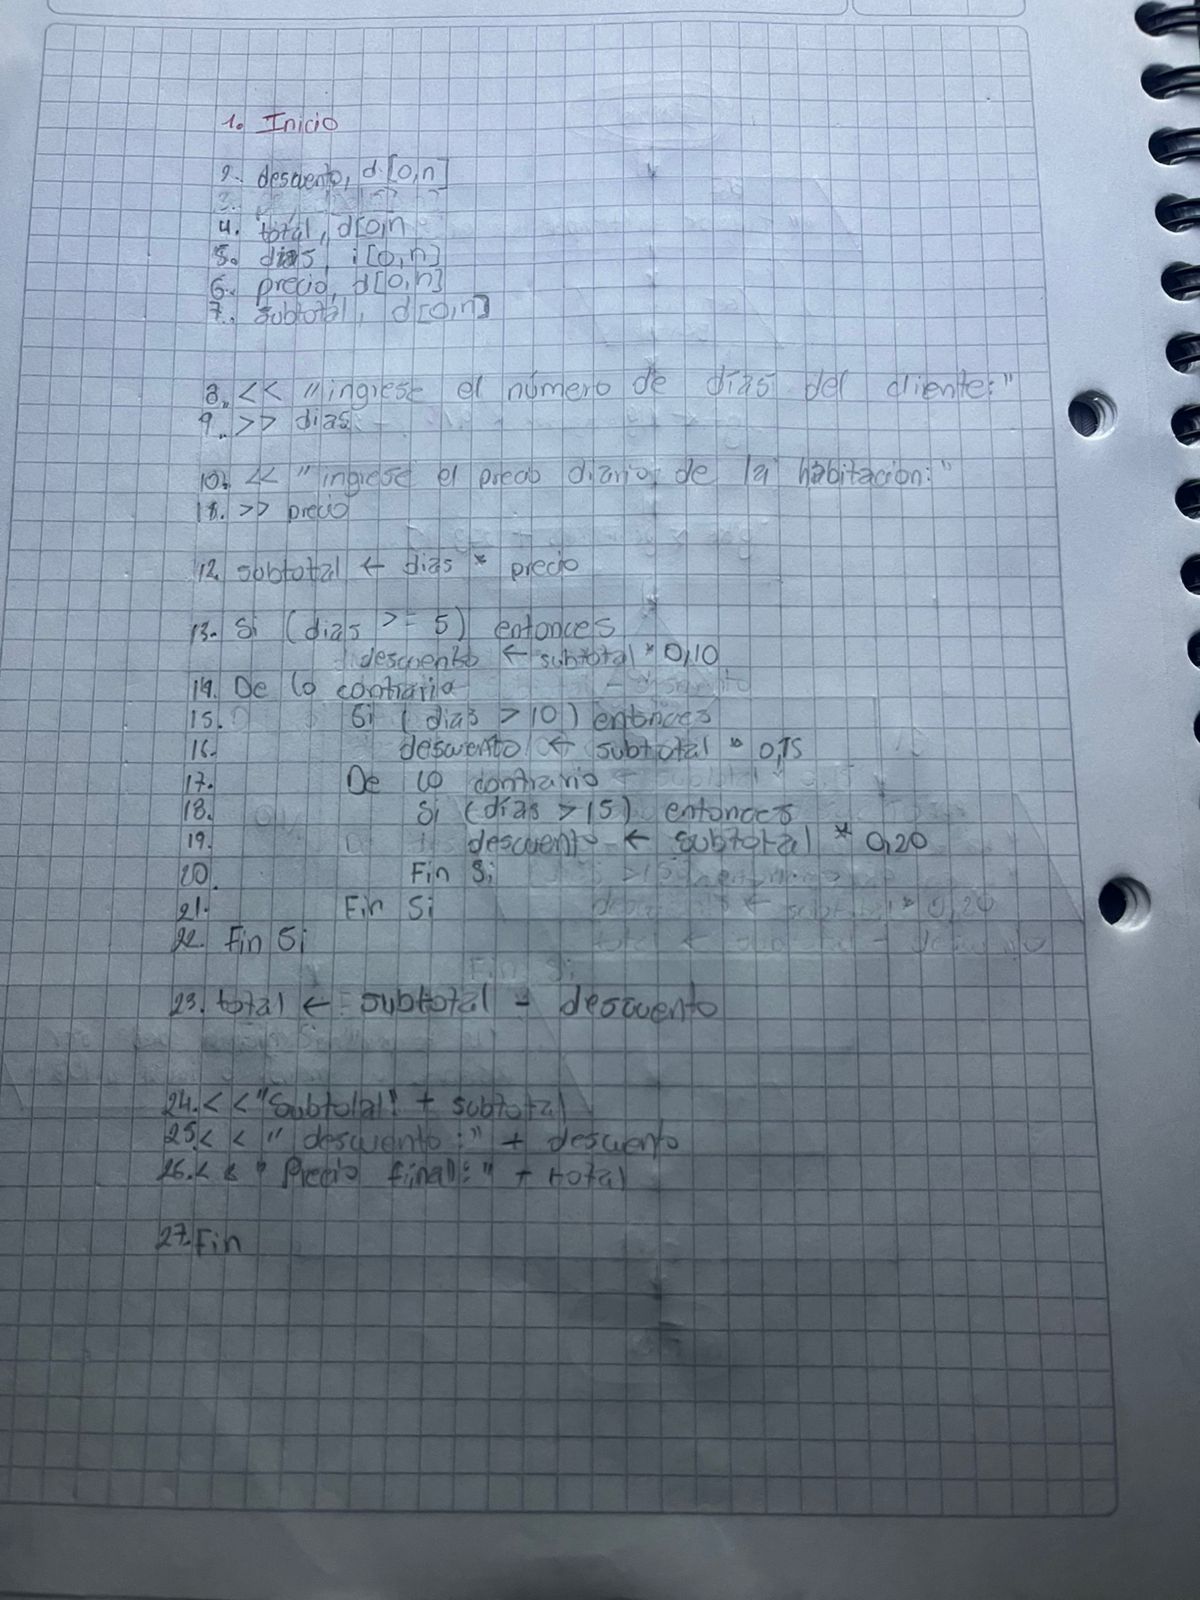 1. Inicio
2. descuento, d[0,n]
3.
4. total, d[0,n
5. dias, i[0,n]
6. precio, d[0,n]
7. subtotal, d[0,n]
8. << "ingrese el número de dias del cliente:"
9. >> dias
10. << "ingrese el precio diario de la habitacion:"
11. >> precio
12. subtotal ← dias * precio
13. Si (dias >= 5) entonces
descuento ← subtotal * 0,10
14. De lo contraria
15. Si (dias > 10) entonces
16. descuento ← subtotal * 0,15
17. De lo contrario
18. Si (dias > 15) entonces
19. descuento ← subtotal * 0,20
20. Fin Si
21. Fin Si
22. Fin Si
23. total ← subtotal - descuento
24. << "Subtotal" + subtotal
25. << "descuento:" + descuento
26. << "Precio final:" + total
27. Fin